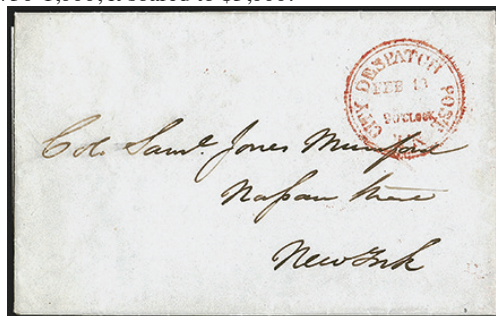 it soared to
CITY DESPATCH POST
FEB 13
9 O'CLOCK
Col. Saml. Jones Mumford
Nassau Street
New York